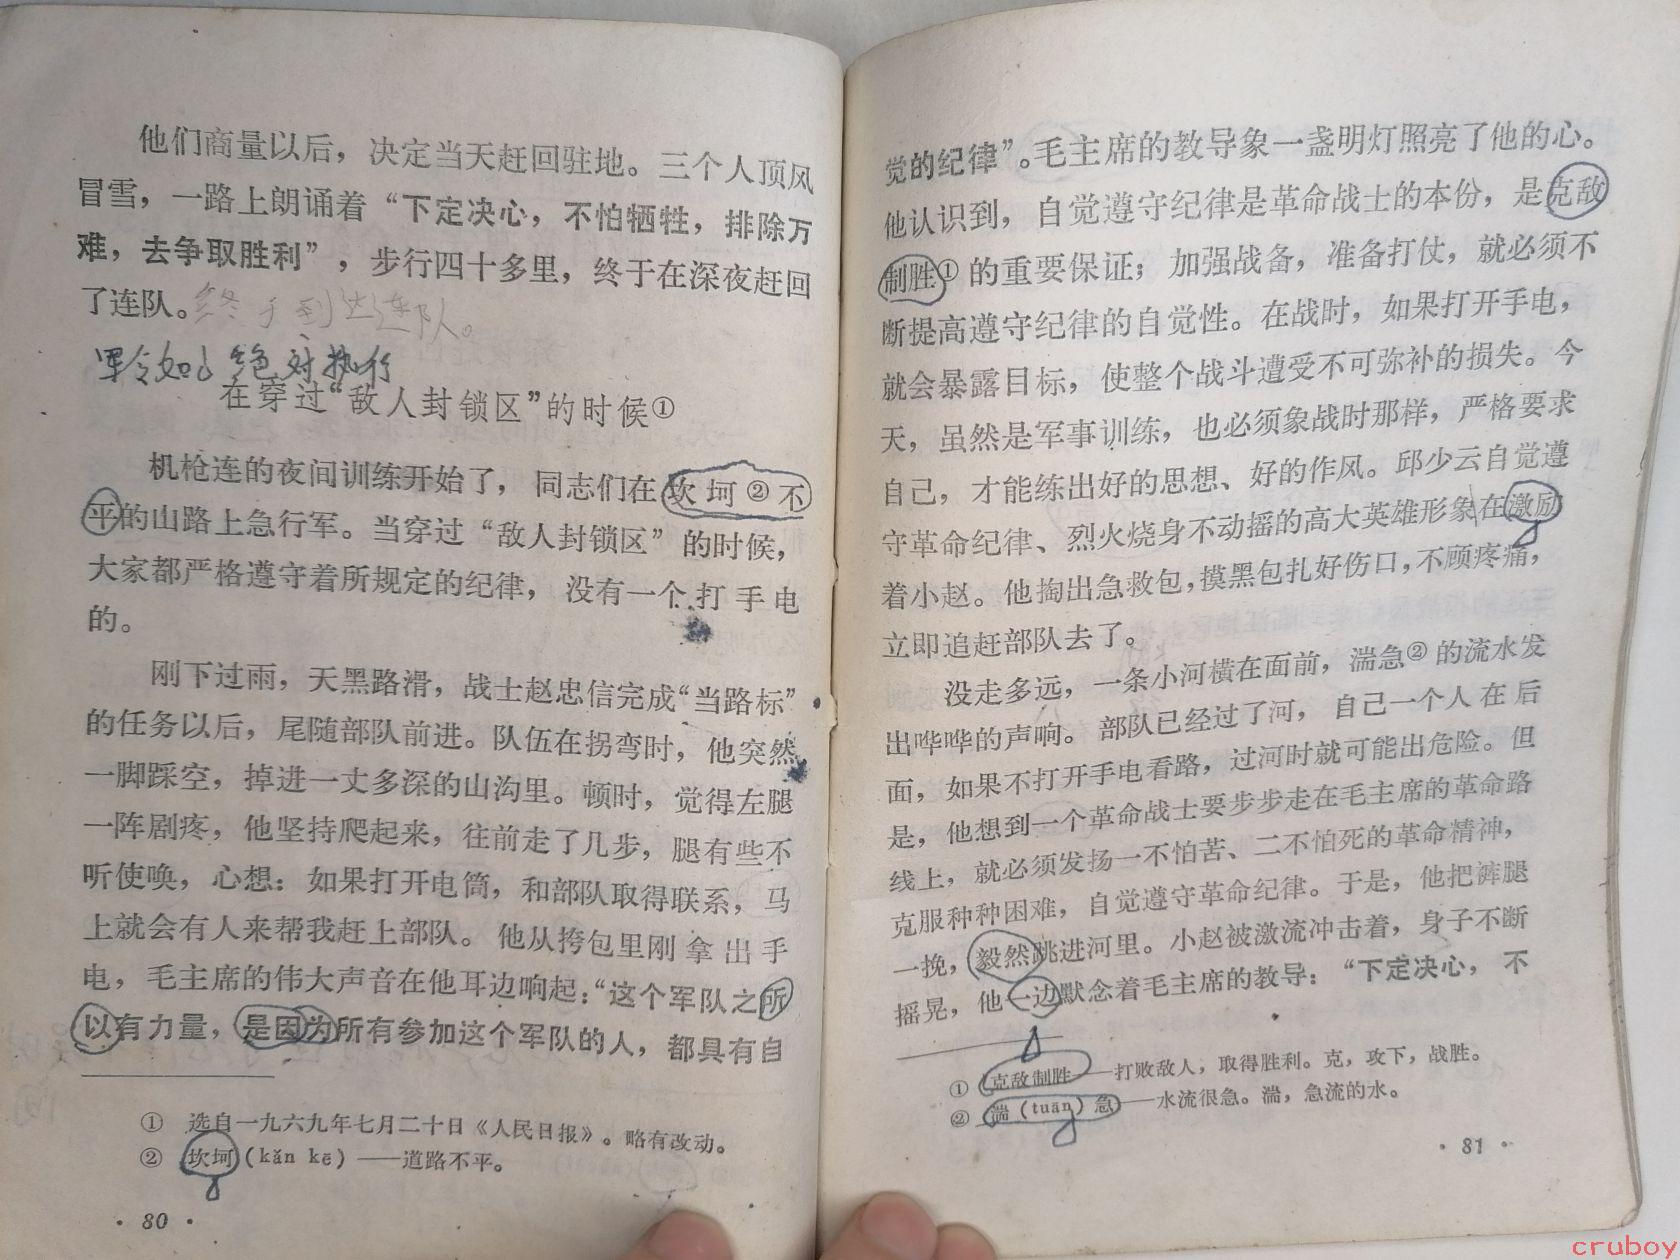 他们商量以后，决定当天赶回驻地。三个人顶风
冒雪，一路上朗诵着“下定决心，不怕牺牲，排除万
难，去争取胜利”，步行四十多里，终于在深夜赶回
了连队。终于到达连队。
军令如山 绝对执行
在穿过“敌人封锁区”的时候①
机枪连的夜间训练开始了，同志们在坎坷②不
平的山路上急行军。当穿过“敌人封锁区”的时候，
大家都严格遵守着所规定的纪律，没有一个打手电
的。
刚下过雨，天黑路滑，战士赵忠信完成“当路标”
的任务以后，尾随部队前进。队伍在拐弯时，他突然
一脚踩空，掉进一丈多深的山沟里。顿时，觉得左腿
一阵剧疼，他坚持爬起来，往前走了几步，腿有些不
听使唤，心想：如果打开电筒，和部队取得联系，马
上就会有人来帮我赶上部队。他从挎包里刚拿出手
电，毛主席的伟大声音在他耳边响起：“这个军队之所
以有力量，是因为所有参加这个军队的人，都具有自
① 选自一九六九年七月二十日《人民日报》。略有改动。
② 坎坷(kǎn kě)——道路不平。
· 80 ·
觉的纪律”。毛主席的教导象一盏明灯照亮了他的心。
他认识到，自觉遵守纪律是革命战士的本份，是克敌
制胜①的重要保证；加强战备，准备打仗，就必须不
断提高遵守纪律的自觉性。在战时，如果打开手电，
就会暴露目标，使整个战斗遭受不可弥补的损失。今
天，虽然是军事训练，也必须象战时那样，严格要求
自己，才能练出好的思想、好的作风。邱少云自觉遵
守革命纪律、烈火烧身不动摇的高大英雄形象在激励
着小赵。他掏出急救包，摸黑包扎好伤口，不顾疼痛，
立即追赶部队去了。
没走多远，一条小河横在面前，湍急②的流水发
出哗哗的声响。部队已经过了河，自己一个人在后
面，如果不打开手电看路，过河时就可能出危险。但
是，他想到一个革命战士要步步走在毛主席的革命路
线上，就必须发扬一不怕苦、二不怕死的革命精神，
克服种种困难，自觉遵守革命纪律。于是，他把裤腿
一挽，毅然跳进河里。小赵被激流冲击着，身子不断
摇晃，他一边默念着毛主席的教导：“下定决心，不
① 克敌制胜——打败敌人，取得胜利。克，攻下，战胜。
② 湍(tuān)急——水流很急。湍，急流的水。
· 81 ·
cruboy